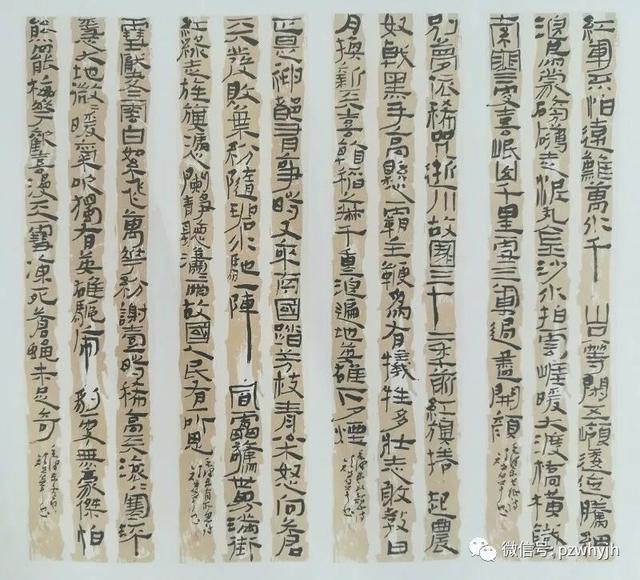 紅軍不怕遠難萬水千山等閑五嶺逶迤騰細
浪烏蒙磅礴走泥丸金沙水拍雲崖暖大渡橋橫鐵
索寒更喜岷山千里雪三軍過盡開顏
別夢依稀咒逝川故園三十二年前紅旗捲起農
奴戟黑手高懸霸主鞭為有犧牲多壯志敢教日
月換新天喜看稻菽千重浪遍地英雄下夕煙
正是神都有事時又來南國踏芳枝青松怒向蒼
天發敗葉紛隨碧水馳一陣風雷驚世界滿街
紅綠走旌旗憑闌靜聽瀟瀟雨故國人民有所思
雪壓冬雲白絮飛萬花紛謝一時稀高天滾滾寒流
急大地微微暖氣吹獨有英雄驅虎豹更無豪傑怕
熊羆梅花歡喜漫天雪凍死蒼蠅未足奇
微信号: pzwhyjh